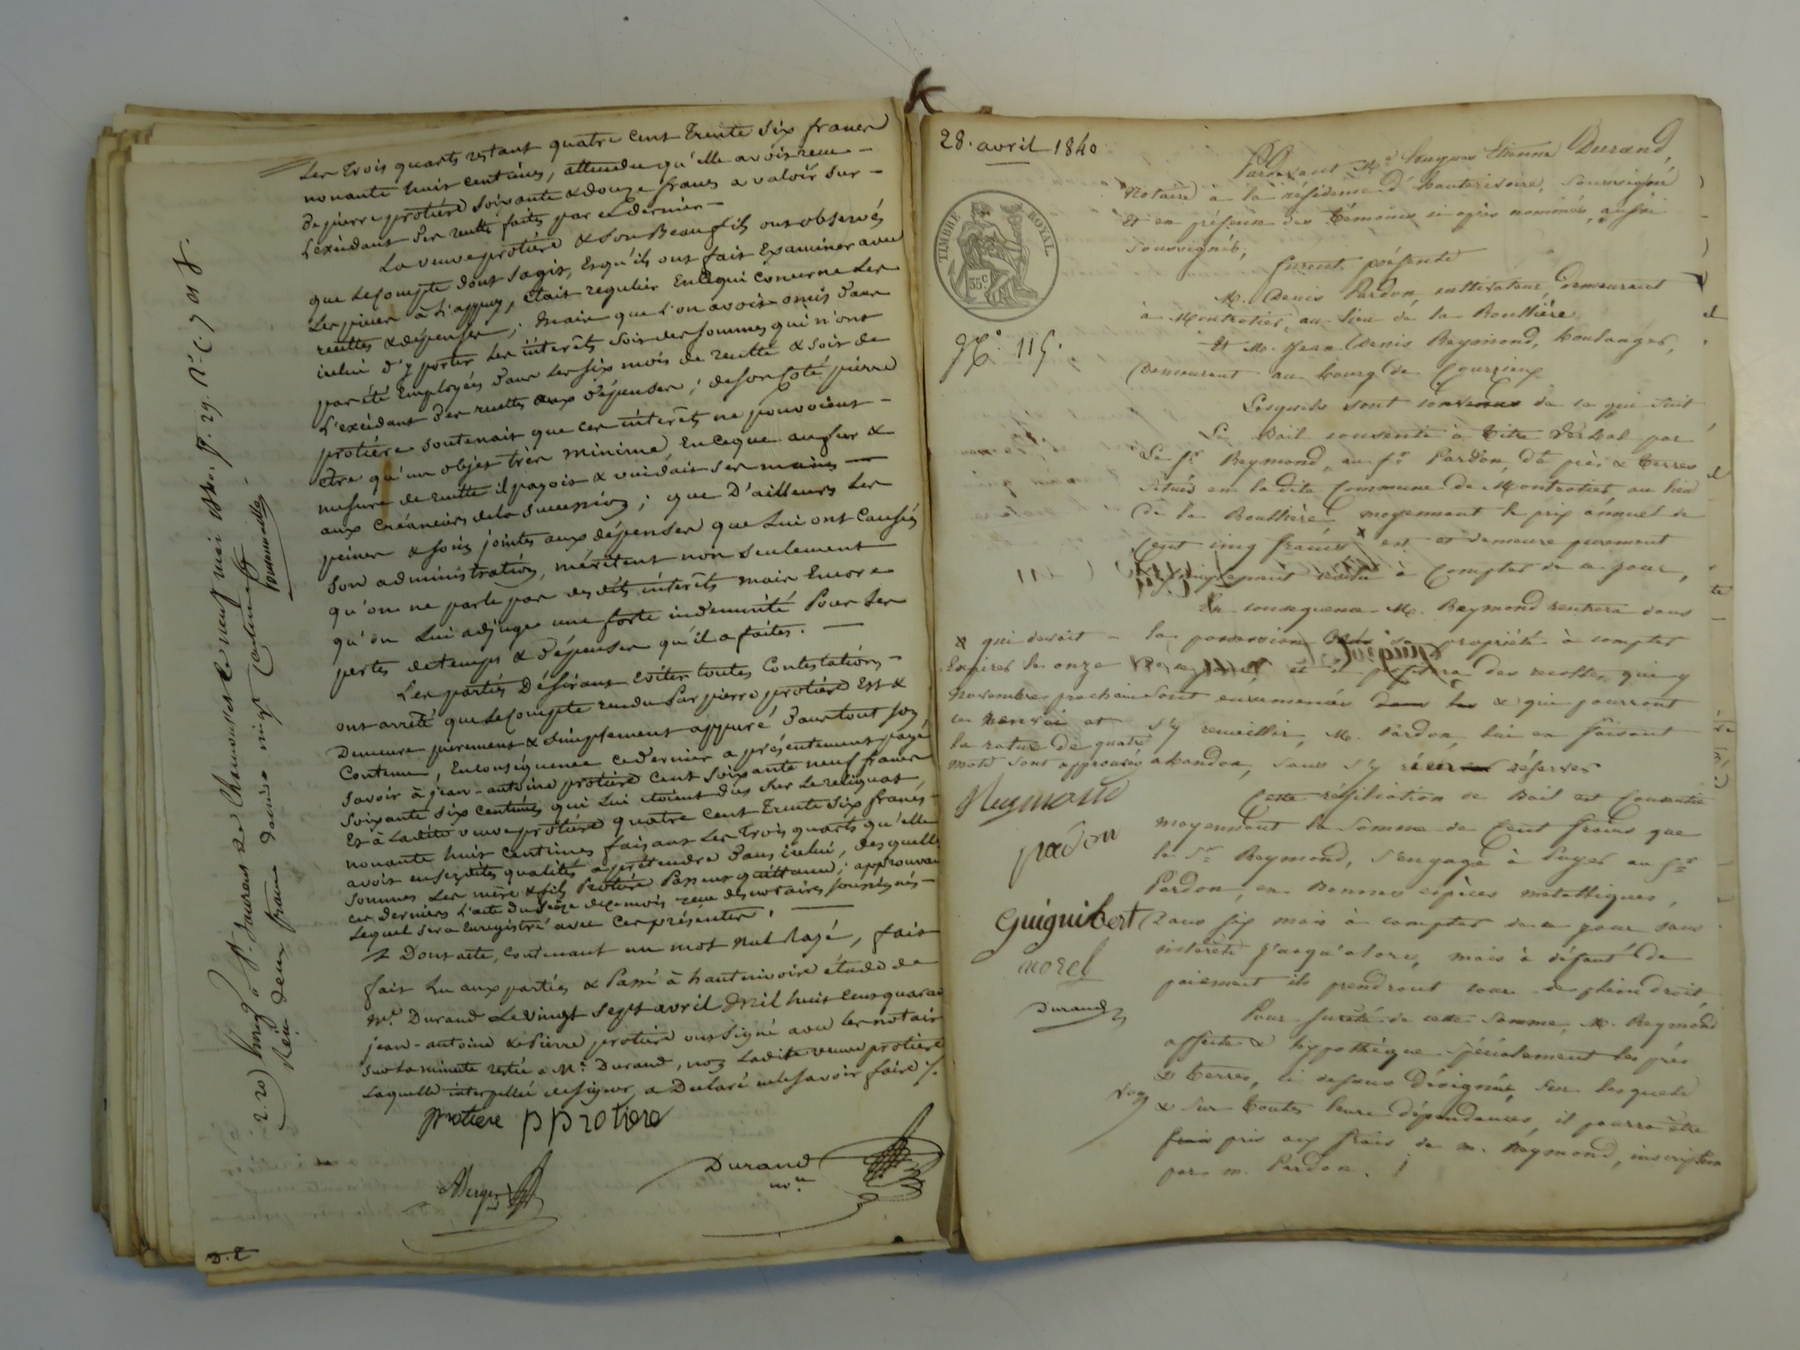 Les trois quarts restant quatre cent trente six francs
nonante huit centimes, attendu qu'elle avoit reçu
de pierre protière soixante & douze francs a valoir sur
l'excédant des recettes faites par ce dernier
La veuve protière & son Beau fils ont observés
que le compte dont s'agit, Et qu'ils ont fait Examiner avec
Les pièces à l'appuy, était regulier En ce qui concerne Les
recettes & dépenses ; mais que l'on avoit omis dans
icelui d'y porter Les intérêts soit des sommes qui n'ont
pas été Employées dans les six mois de recette & soit de
L'excédant des recettes aux dépenses ; de son côté pierre
protière soutenait que ces intérêts ne pouvoient
être qu'un objet très minime, En ce que au fur &
mesure de recette il payoit & vuidait ses mains
aux Créanciers de la succession ; que D'ailleurs Les
peines & soins joints aux dépenses que Lui ont Causés
son administration, méritent non seulement
qu'on ne parle pas des dits intérêts mais Encore
qu'on Lui adjuge une forte indemnité Pour ses
pertes de temps & dépenses qu'il a faites.
Les parties Désirant Eviter toutes Contestations
ont arrêté que Le Compte rendu Par pierre protière Est &
Demeure purement & simplement appuré dans tout son
Contenu, En conséquence ce dernier a présentement payé
Savoir à jean-antoine protière cent soixante neuf francs
soixante six centimes qui Lui étoient dus sur Le reliquat
Et à Ladite veuve protière quatre cent Trente six francs
nonante huit centimes faisant Les Trois quarts qu'elle
avoit en ses dites qualités à prétendre dans icelui, desquelles
sommes Les mère & fils Protière Passent quittance ; approuvant
ces derniers L'acte du seize de ce mois reçu des notaires soussignés
Lequel sera Enregistré avec Ces présentes.
Dont acte, contenant un mot nul rayé, fait
fait Lu aux parties & Passé à hauterivoire étude de
Me. Durand Le vingt sept avril Mil huit cent quarante
jean-antoine & Pierre protière ont signé avec les notaires
sur La minute restée a Me. Durand, non Ladite veuve protière
Laquelle interpellée de signer, a Déclaré ne le savoir faire
protiere pprotiere
Berger
Durand
nre
D. E
220) Enreg. à St. Laurent de Chamousset le neuf mai 1840. f. 29.
Reçu deux francs dixième vingt Centimes
28. avril 1840
TIMBRE ROYAL
35 C
No. 115.
Pardevant Me. hugues Etienne Durand,
Notaire à la résidence d'hauterivoire, soussigné
Et en présence des témoins ci après nommés, aussi
soussignés,
furent présents
M. Denis Pardon cultivateur demeurant
à Montrotier, au lieu de la Bouttière
Et M. Jean Denis Reymond, boulanger,
Demeurant au bourg de Courzieu
Lesquels sont convenus de ce qui suit
Le Bail consenti à titre verbal par
Le sr. Reymond, au sr. Pardon, de près & terres
situés en la dite Commune de Montrotier, au lieu
De la Bouttière, moyennant le prix annuel de
Cent cinq francs x est et demeure purement
& simplement résilié à Compter de ce jour,
En conséquence M. Reymond rentrera dans
la possession de sa propriété à compter
et il profitera des recoltes, qui y
sont ensemencées & qui pourront
s'y recueillir, M. Pardon, lui en faisant
abandon, sans s'y réserves
x qui devoit
Expirer le onze
novembre prochain
ce renvoi et
la rature de quatre
mots sont approuvés
Reymond
pardon
Guiguibert
morel
Durand
Cette résiliation de Bail est Consentie
moyennant la Somme de Cent francs que
le Sr. Reymond, s'engage à Payer au Sr.
Pardon, en Bonnes espèces metalliques,
Dans six mois à compter de ce jour sans
intérêts jusqu'alors, mais à défaut de
paiement ils prendront cours de plein droit,
Pour sureté de cette Somme, M. Reymond
affecte & hypothéque spécialement les prés
& terres, ci dessus désignés, sur lesquels
& sur toutes leurs dépendances, il pourra être
frais pris aux frais de m. Reymond, inscription
par m. Pardon.